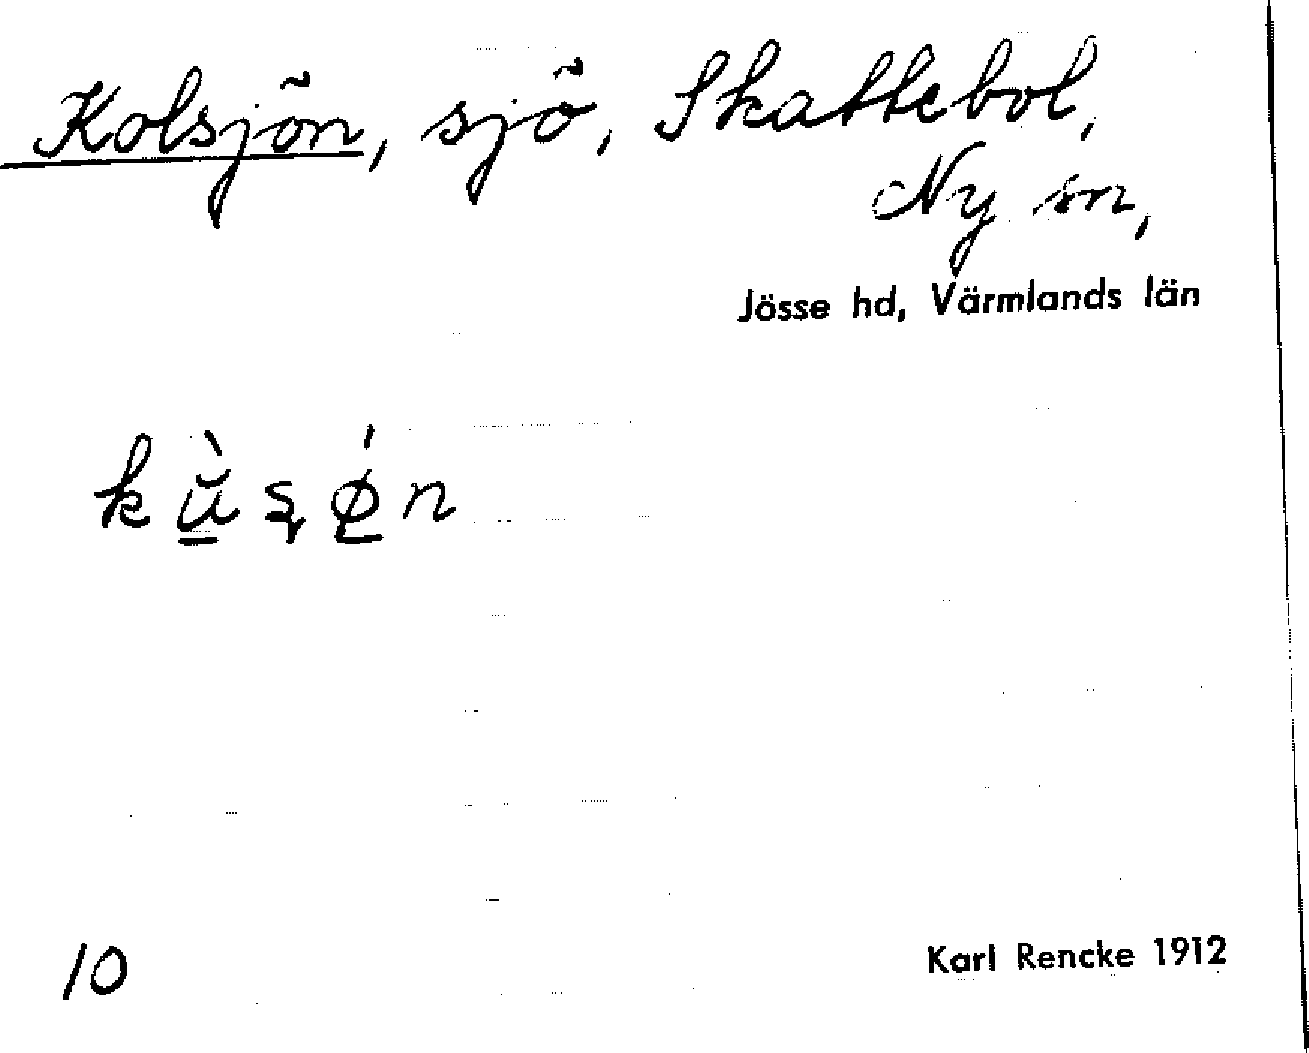 Kolsjön, sjö, Skattebol,
Ny sn,
Jösse hd, Värmlands län
10
Karl Rencke 1912